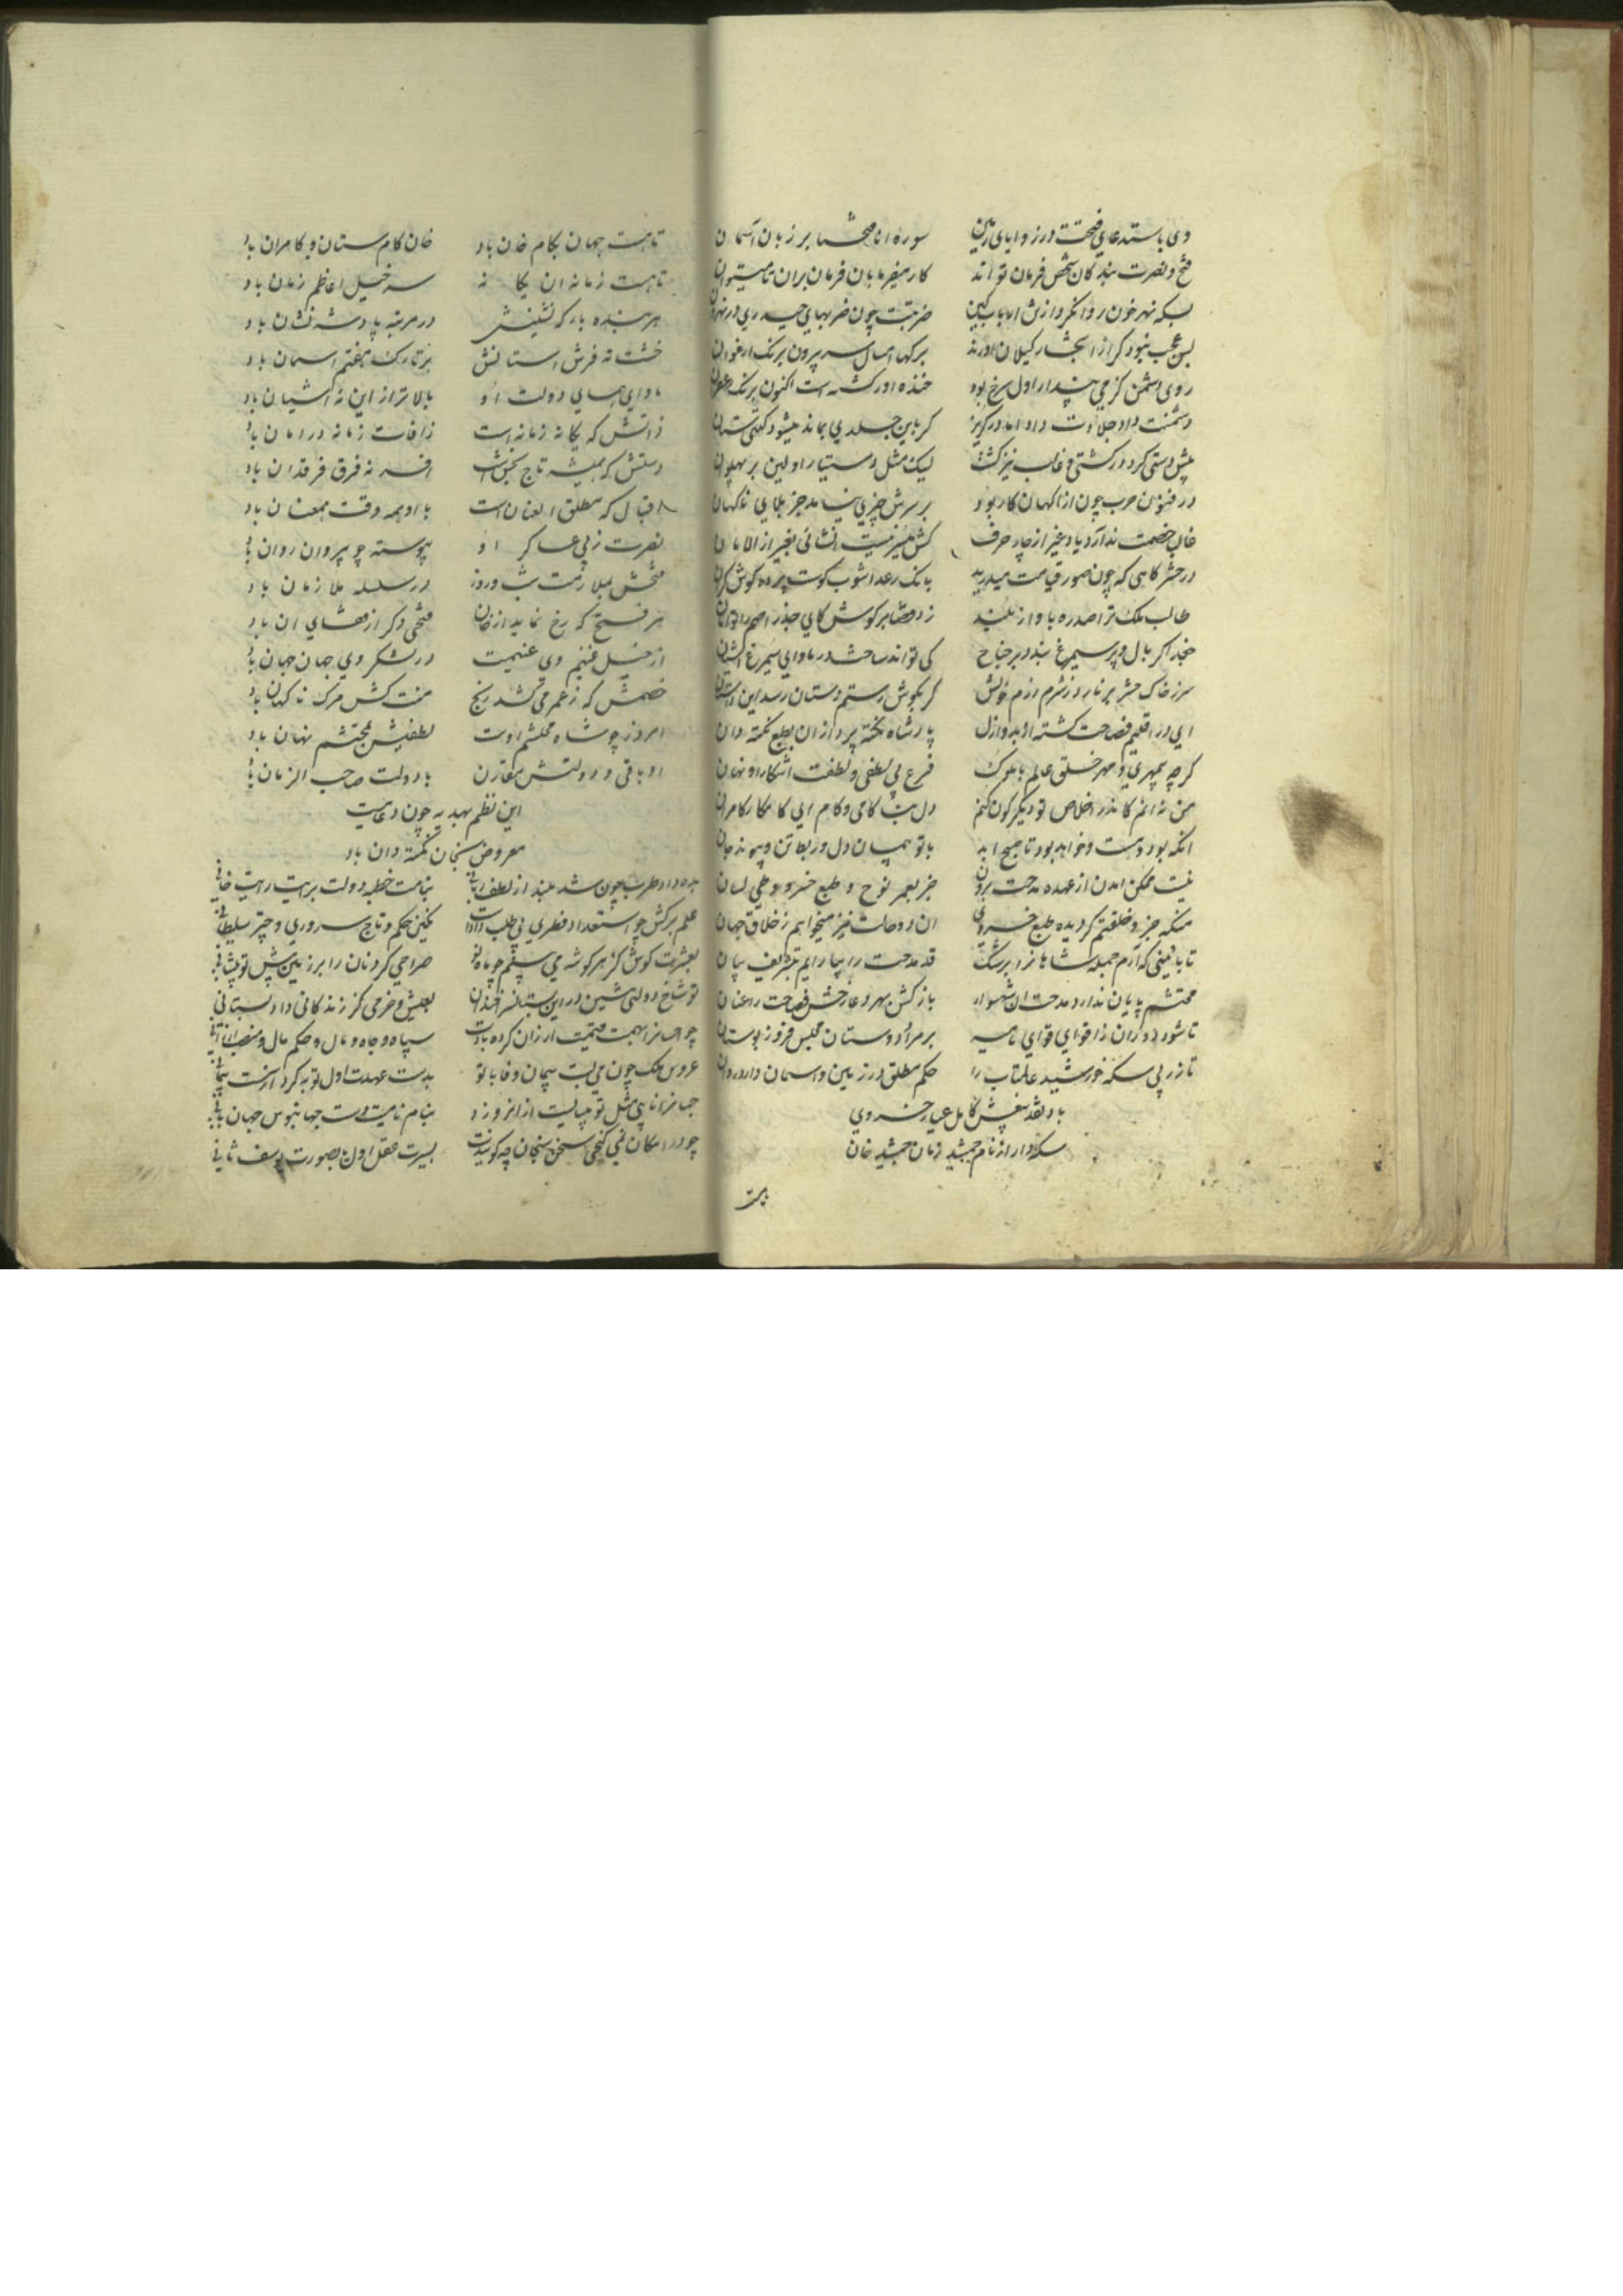 وی باستدعای فتحت در زوایای زمین سوره انا فتحنا بر زبان آسمان
فتح و نصرت بندکان شخص فرمان تو اند کار میفرما بان فرمان بران تا میتوان
بسکه نهر خون روانکرد از ضربتت چون ضربهای حیدری در نهروان
بس عجب نبود کر از اشجار کیلان اورند برکها امسال سر بیرون برنک ارغوان
روی دشمن کز می پندار اول سرخ بود خنده اور کشته است اکنون برنک زعفران
دشمنت داد جلادت داد اما در کریز کر باین جلدی بماند میشود کیتی ستان
پیش دستی کرد در کشتی و غالب نیز کشت لیک مثل دستیار اولین بر پهلوان
در فنون حرب چون از اکهان کار بود بر سرش چیزی نیامد جز بلای ناکهان
غالب خصمت ندارد یاد غیر از چار حرف کش میسر نیست انشائی بغیر از الامان
در حشر کاهی که چون صور قیامت میدرید بانک رعد اشوب کوست پرده کوش کران
طالب ملک ترا صد ره باواز بلند زد قضا بر کوش کای جذر اصم را توامان
خجر اکر بال و پر سیمرغ بندد بر جناح کی تواند ساخت در ماوای سیمرغ آشیان
سر ز خاک حشر بر نارد ز شرم رزم خویش کر بکوش رستم دستان رسد این داستان
ای در اقلیم فصاحت کشته از بدو ازل پادشاه نکته پردازان بطبع نکته دان
کرچه بیمهری و مهر خلق عالم با ملوک فرع بی لطفی و لطفت اشکار او نهان
من نه انم کاندر اخلاص تو دیکر کون کنم دل بنا کامی و کام ای کامکار کامران
انکه بود و هست و خواهد بود تا صبح ابد با تو پیمان دل و ربط تن و پیوند جان
نیست ممکن امدن از عهده مدحت برون جز بعمر نوح و طبع خسرو و طی لسان
منکه جز و خلقتم کردیده طبع خسروی ان دو حالت نیز میخواهم ز خلاق جهان
تا بائینی که آرم جمله شاهانرا برشک قد مدحت را بیارایم بتشریف بیان
محتشم پایان ندارد مدحت ان شهسوار باز کش بهر دعا رخش فصاحت را عنان
تا شود دوران ز اقوای قوای نامیه بر مراد دوستان مجلس فروز بوستان
تا زر پی سکه خورشید عالمتاب را حکم مطلق در زمین و اسمان دارد روان
باد نقد بیغش کامل عیار خسروی
سکه دار از نام جمشید زمان جمشید خان
تا هست
تا هست جهان بکام خان باد خان کام ستان و کامران باد
تا هست زمانه ان یکانه سر خیل اعاظم زمان باد
هر بنده بارکه نشینش در مرتبه پادشه نشان باد
خشت ته فرش استانش بر تارک هفتم اسمان باد
ماوای همای دولت او بالاتر از این نه اشیان باد
ذاتش که یکانه زمانه است ز افات زمانه در امان باد
دستش که همیشه تاج بخش است افسر نه فرق فرقدان باد
اقبال که مطلق العنان است با او همه وقت همعنان باد
نصرت ز پی عساکر او پیوسته چو پیروان روان باد
فتحش بملازمت شب و روز در سلسله ملازمان باد
هر فتح که رخ نماید از خان فتحی دکر از قفای ان باد
از خیل غنیم وی غنیمت در لشکر وی جهان جهان باد
خصمش که ز عمر می کشد رنج منت کش مرک ناکهان باد
امروز چو شاه محتشم اوست لطفیش بمحتشم نهان باد
او باقی و دولتش مقارن با دولت صاحب الزمان باد
این نظم بهدیه چون دعائیت
معروض سخنان نکته دان باد
چون شد بلند از لطف بنامت خطبه دولت برایت رایت خانی
علم برکش چو استعداد فطری بی طلب دادت نکین حکم و تاج سروری و چتر سلطانی
بعشرت کوش کز هر کوشه می بینم چو ماه نو صراحی کردنان را بر زمین پیش تو پیشانی
تو شاخ دولتی بنشین در این بعیش و خرمی کز زندکانی داد بستانی
چو همت قیمت ارزان کرده بادت سپاه و جاه و مال و حکم
عروس ملک چون می بست پیمان وفا با تو بدست عهدت اول توبه کرد از سست پیمانی
جهانرا بی مثل تو میبایست از انرو زد بنام نامیت دست جهان بانی
چو در امکان نمی کنجی سخن سنجان چه کویندت بسیرت عقل اول یا بصورت یوسف ثانی